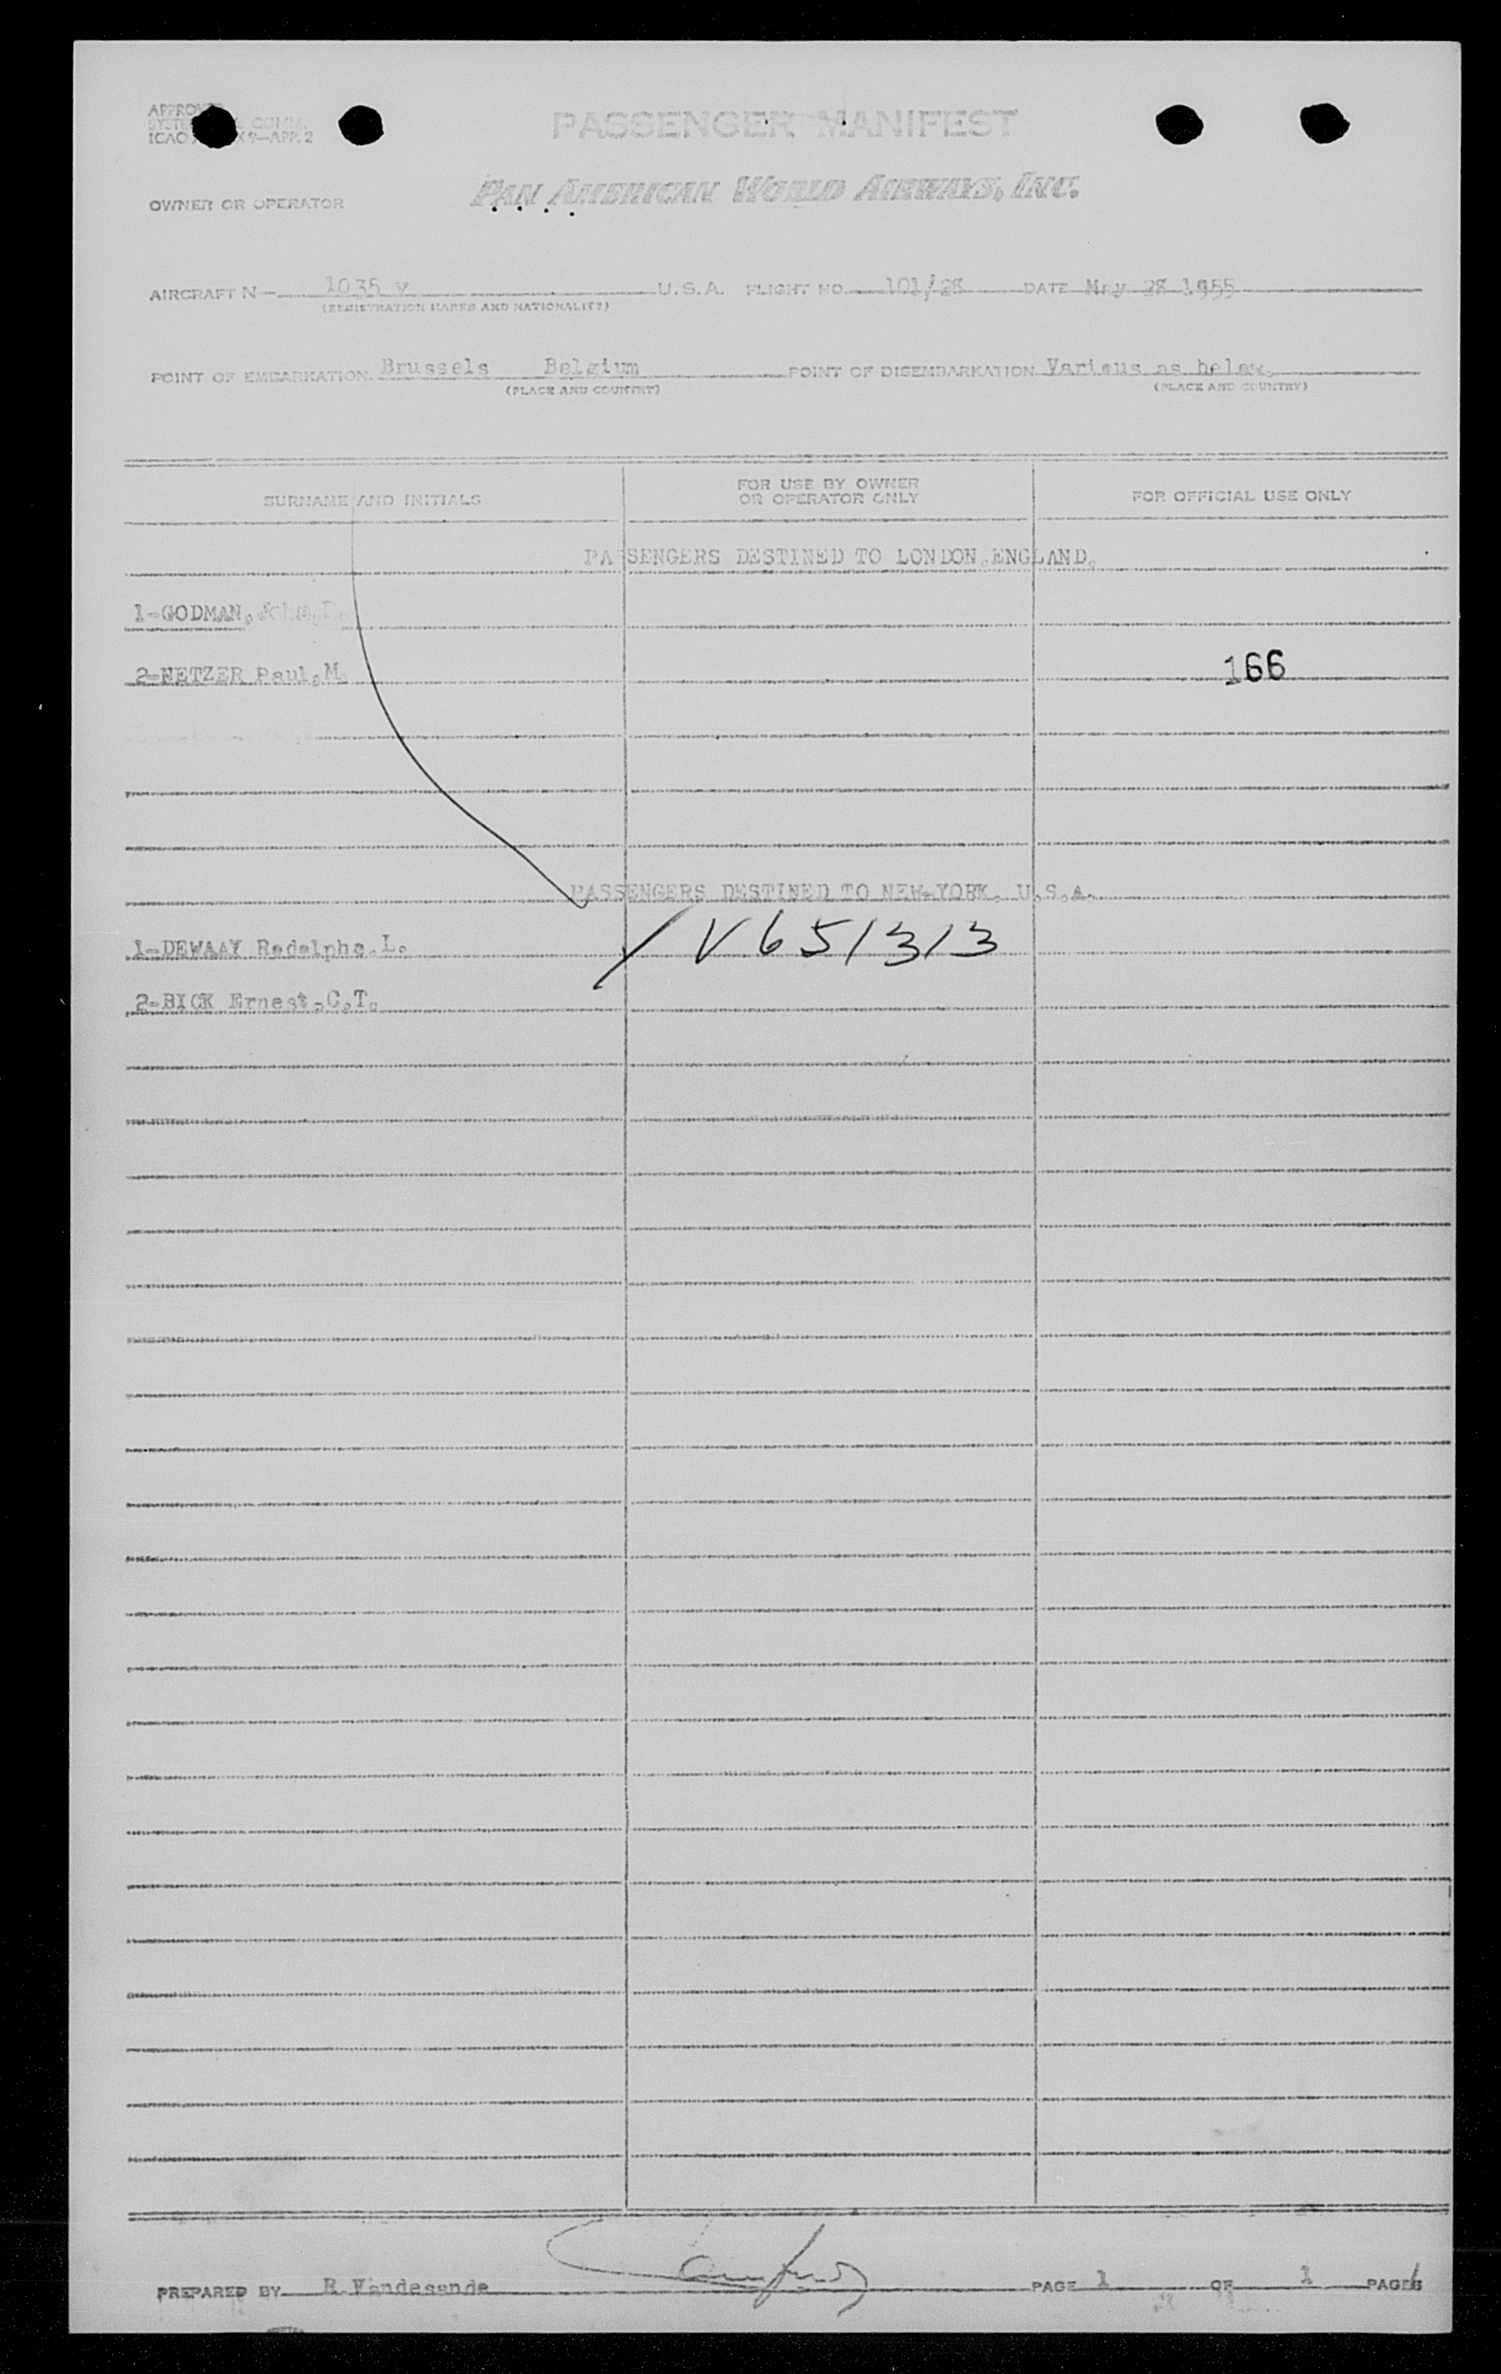 PASSENGER MANIFEST
ICAO
APP. 2
OWNER OR OPERATOR PAN AMERICAN WORLD AIRWAYS, INC.
AIRCRAFT N— 1035 v U.S.A. FLIGHT NO. 101/28 DATE May 28 1955
(REGISTRATION MARKS AND NATIONALITY)
POINT OF EMBARKATION Brussels Belgium POINT OF DISEMBARKATION Various as below.
(PLACE AND COUNTRY) (PLACE AND COUNTRY)
SURNAME AND INITIALS FOR USE BY OWNER OR OPERATOR ONLY FOR OFFICIAL USE ONLY
PASSENGERS DESTINED TO LONDON.ENGLAND.
1-GODMAN.
2-NETZER Paul.M.
166
PASSENGERS DESTINED TO NEW-YORK. U.S.A.
1-DEWAAY Rodolphe.L.
V651313
2-BICK Ernest.C.T.
PREPARED BY R.Vandesande PAGE 1 OF 1 PAGES